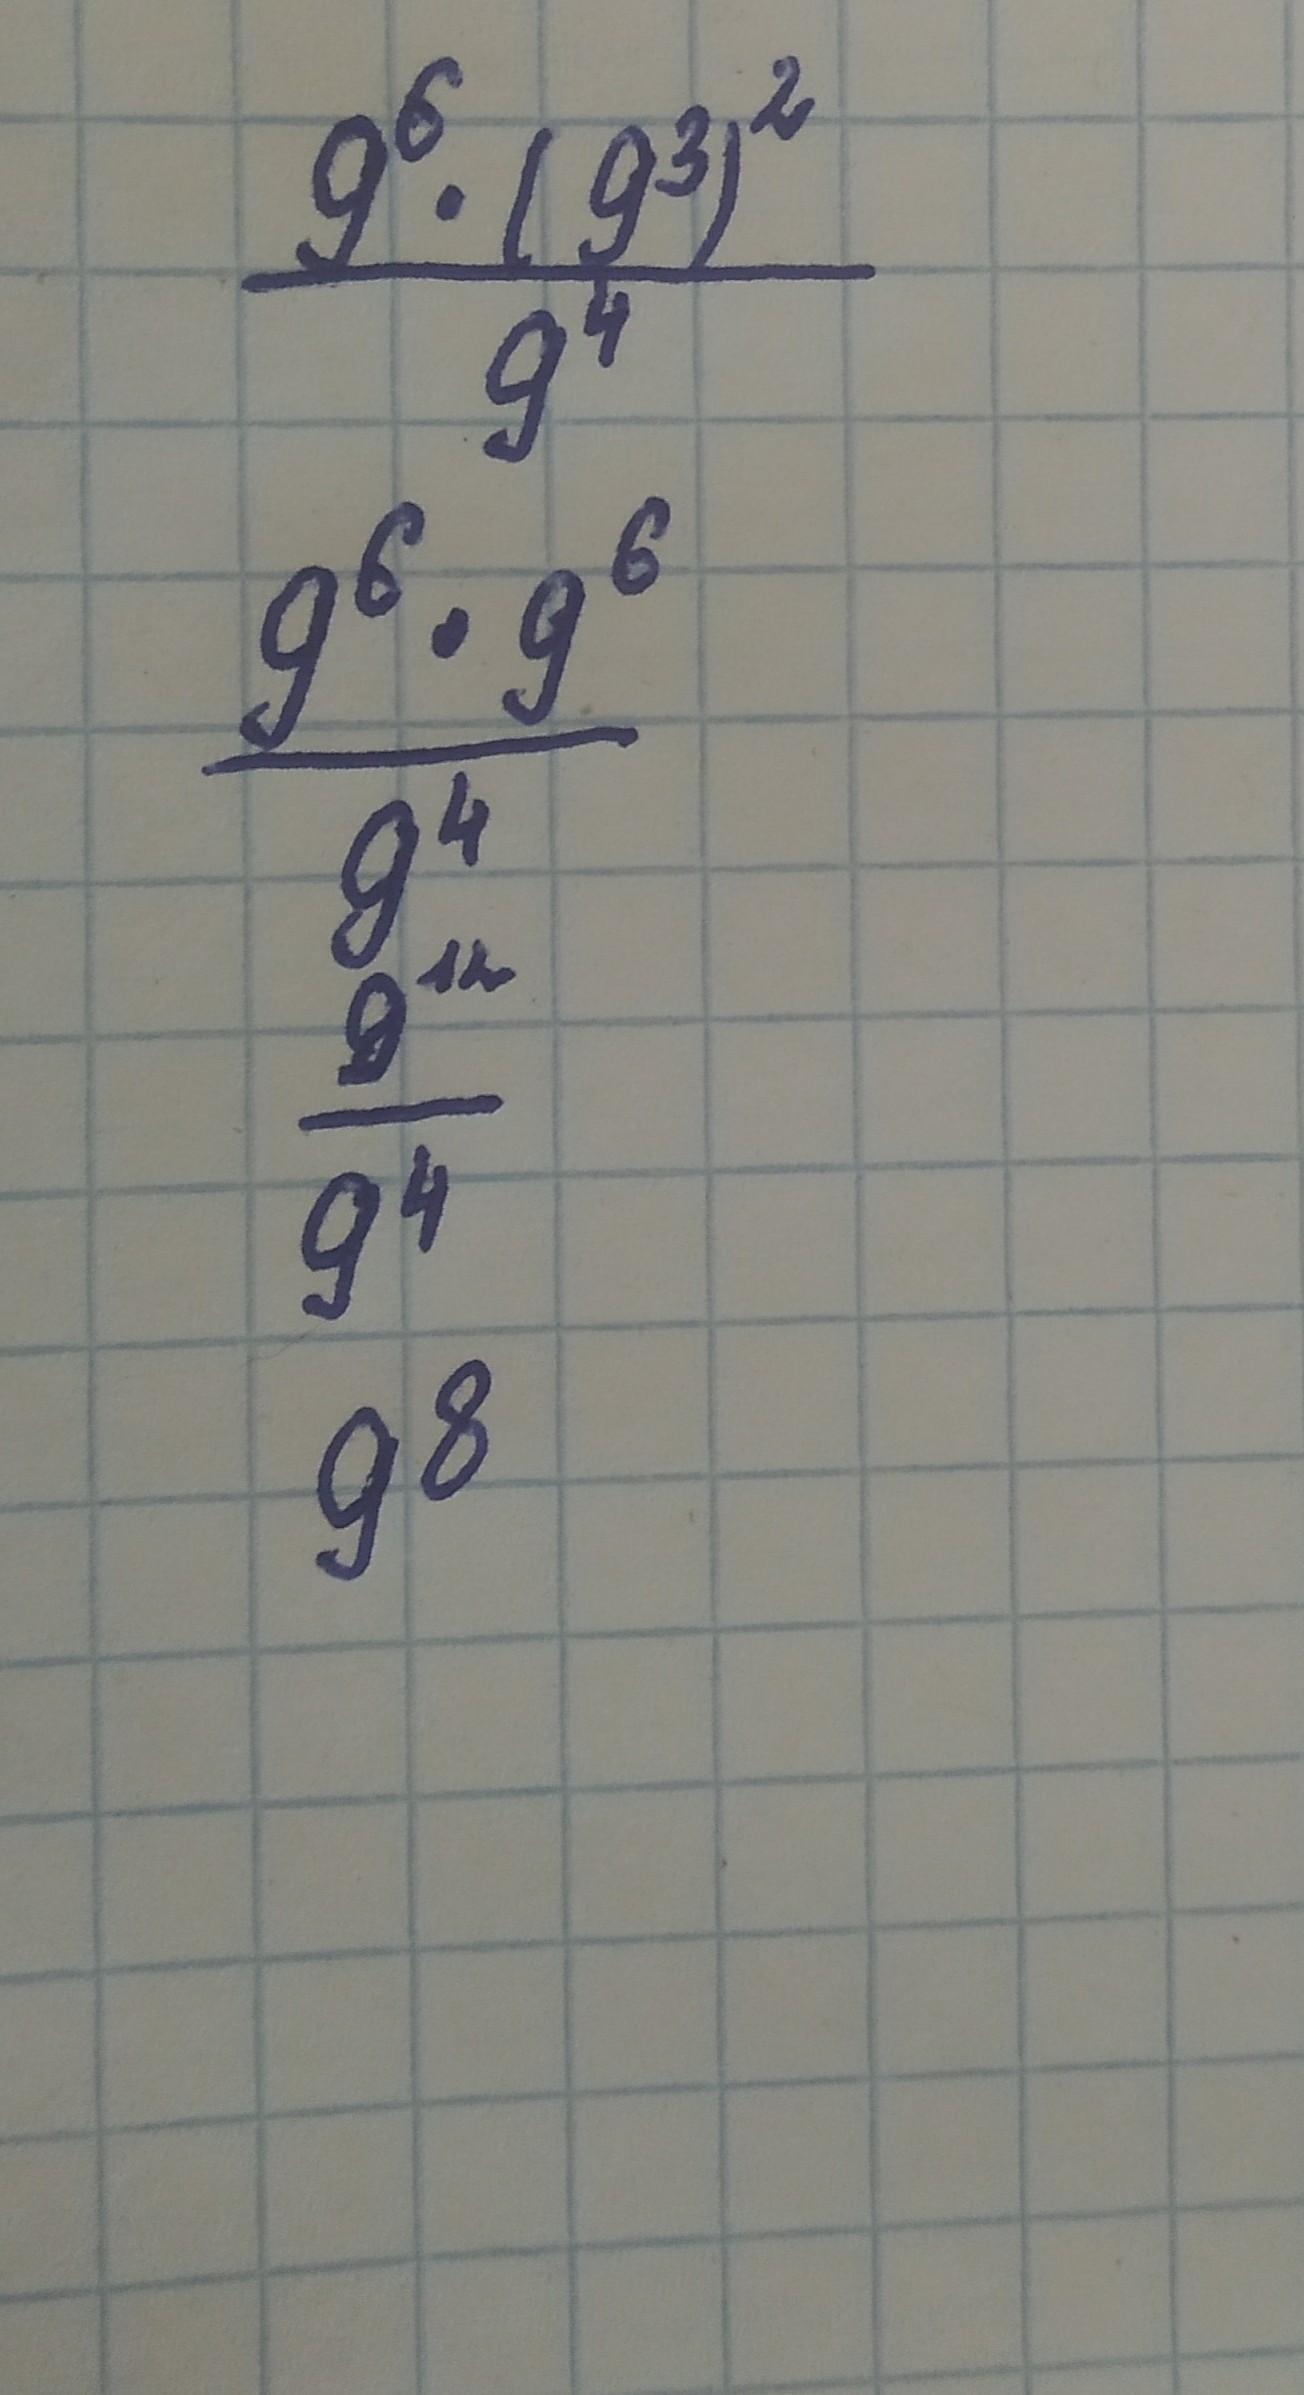 9⁶ · (9³)²
9⁴
9⁶ · 9⁶
9⁴
9¹²
9⁴
9⁸